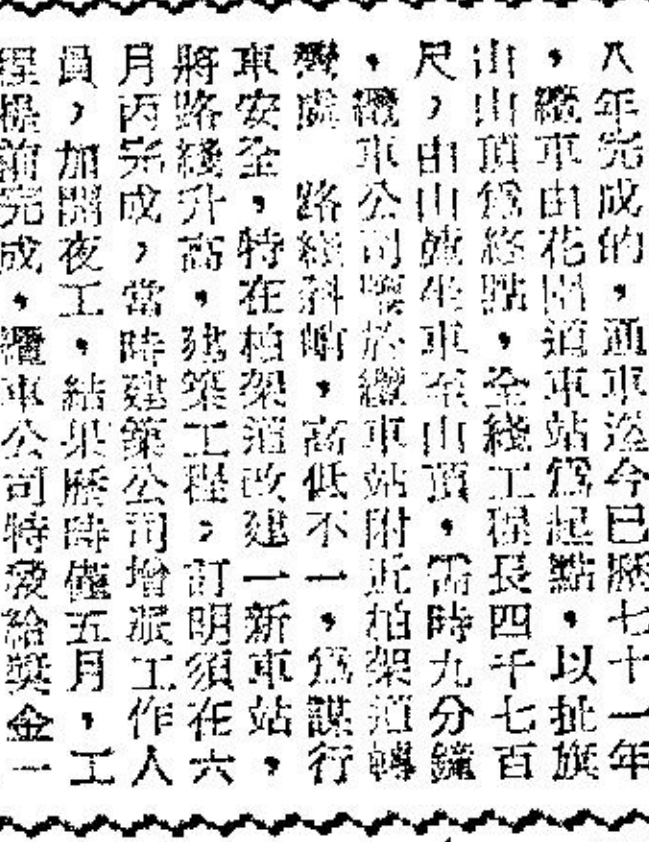 八年完成的，通車迄今已歷七十一年
，纜車由花園道車站爲起點，以扯旗
山山頂爲終點，全綫工程長四千七百
尺，由山麓坐車至山頂，需時九分鐘
，纜車公司鑒於纜車站附近柏架道轉
彎處 路綫斜峭，高低不一，爲謀行
車安全，特在柏架道改建一新車站，
將路綫升高，建築工程，訂明須在六
月內完成，當時建築公司增派工作人
員，加開夜工，結果歷時僅五月，工
程提前完成，纜車公司特發給獎金一